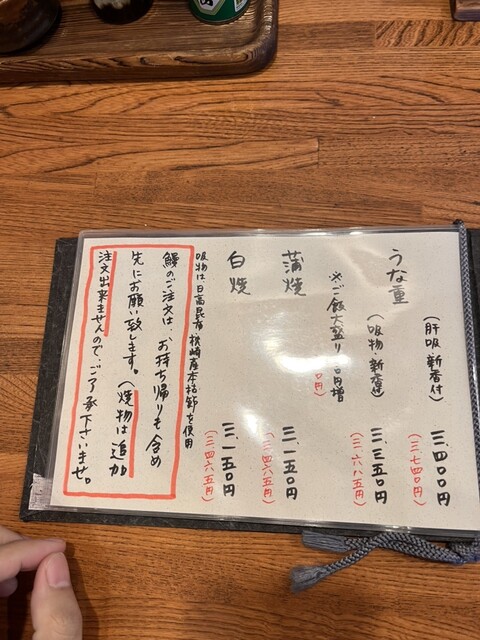 うな重
(肝吸、新香付) 三、四〇〇円
(三、七四〇円)
(吸物、新香付) 三、三五〇円
(三、六八五円)
※ご飯大盛り
円増
円)
蒲焼 三、一五〇円
(三、四六五円)
白焼 三、一五〇円
(三、四六五円)
吸物は日高昆布、枕崎産本枯節を使用
鰻のご注文は、お持ち帰りも含め
先にお願い致します。(焼物は追加
注文出来ませんので、ご了承下さいませ。